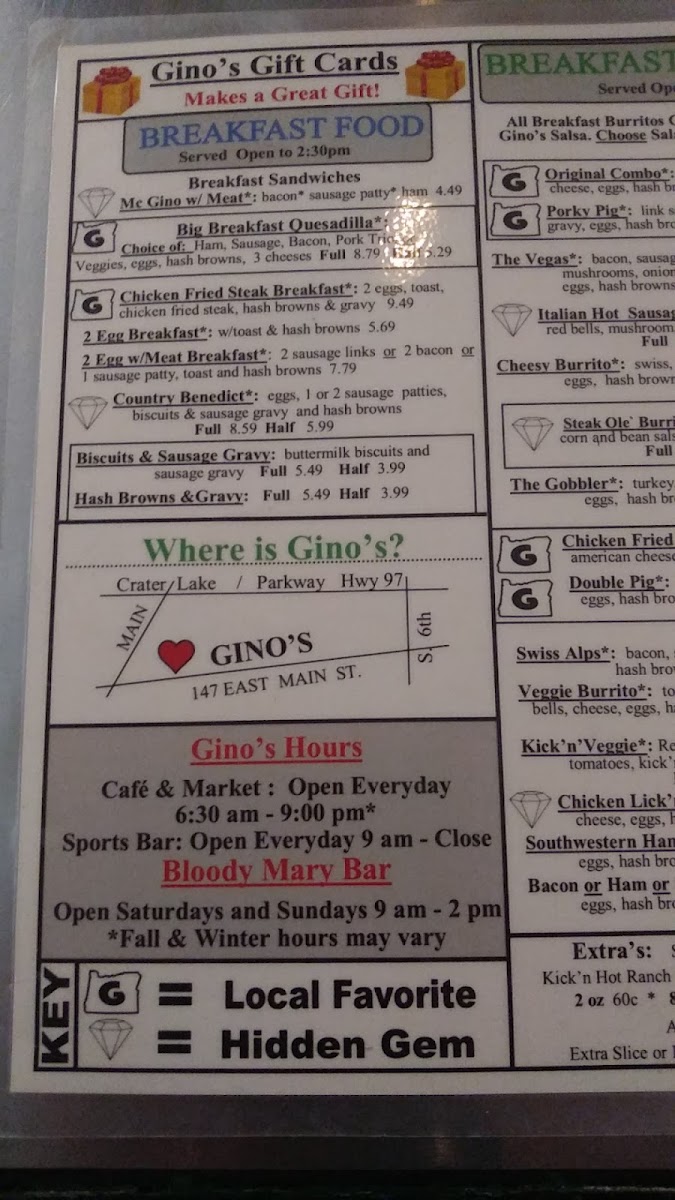 Gino's Gift Cards
Makes a Great Gift!
BREAKFAST FOOD
Served Open to 2:30pm
Breakfast Sandwiches
Mc Gino w/ Meat*: bacon* sausage patty* ham 4.49
G
Big Breakfast Quesadilla*:
Choice of: Ham, Sausage, Bacon, Pork
Veggies, eggs, hash browns, 3 cheeses Full 8.79 Half 5.29
G
Chicken Fried Steak Breakfast*: 2 eggs, toast,
chicken fried steak, hash browns & gravy 9.49
2 Egg Breakfast*: w/toast & hash browns 5.69
2 Egg w/Meat Breakfast*: 2 sausage links or 2 bacon or
1 sausage patty, toast and hash browns 7.79
Country Benedict*: eggs, 1 or 2 sausage patties,
biscuits & sausage gravy and hash browns
Full 8.59 Half 5.99
Biscuits & Sausage Gravy: buttermilk biscuits and
sausage gravy Full 5.49 Half 3.99
Hash Browns &Gravy: Full 5.49 Half 3.99
Where is Gino's?
Crater Lake / Parkway Hwy 97
MAIN
GINO'S
S. 6th
147 EAST MAIN ST.
Gino's Hours
Café & Market : Open Everyday
6:30 am - 9:00 pm*
Sports Bar: Open Everyday 9 am - Close
Bloody Mary Bar
Open Saturdays and Sundays 9 am - 2 pm
*Fall & Winter hours may vary
KEY
G = Local Favorite
= Hidden Gem
BREAKFAST
Served Op
All Breakfast Burritos
Gino's Salsa. Choose Sal
G
Original Combo*:
cheese, eggs, hash b
G
Porky Pig*: link s
gravy, eggs, hash bro
The Vegas*: bacon, sausag
mushrooms, onion
eggs, hash browns
Italian Hot Sausag
red bells, mushroom
Full
Cheesy Burrito*: swiss,
eggs, hash brown
Steak Ole` Burri
corn and bean sals
Full
The Gobbler*: turkey
eggs, hash br
G
Chicken Fried
american cheese
G
Double Pig*:
eggs, hash bro
Swiss Alps*: bacon,
hash bro
Veggie Burrito*: to
bells, cheese, eggs, h
Kick'n'Veggie*: Re
tomatoes, kick'
Chicken Lick'
cheese, eggs, h
Southwestern Ham
eggs, hash bro
Bacon or Ham or
eggs, hash bro
Extra's:
Kick'n Hot Ranch
2 oz 60c *
Extra Slice or